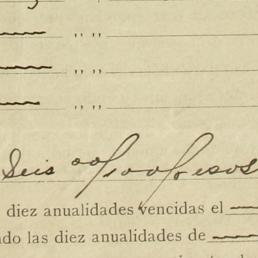 ,, ,,
,, ,,
,, ,,
Seis 00/100 Pesos
diez anualidades vencidas el
ndo las diez anualidades de